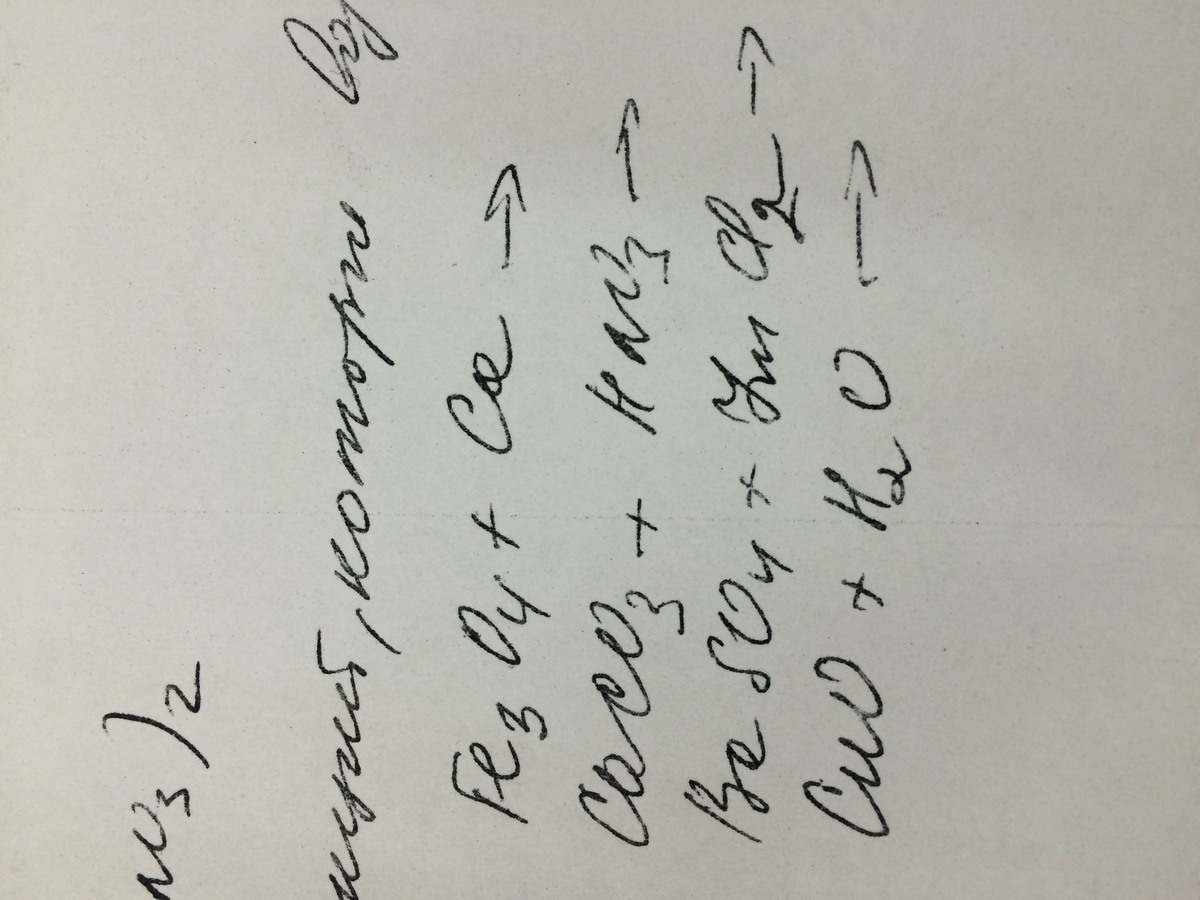 NO3)2
ний, которые
Fe3O4 + Ca →
CaCO3 + HNO3 →
BeSO4 + ZnCl2 →
CuO + H2O →